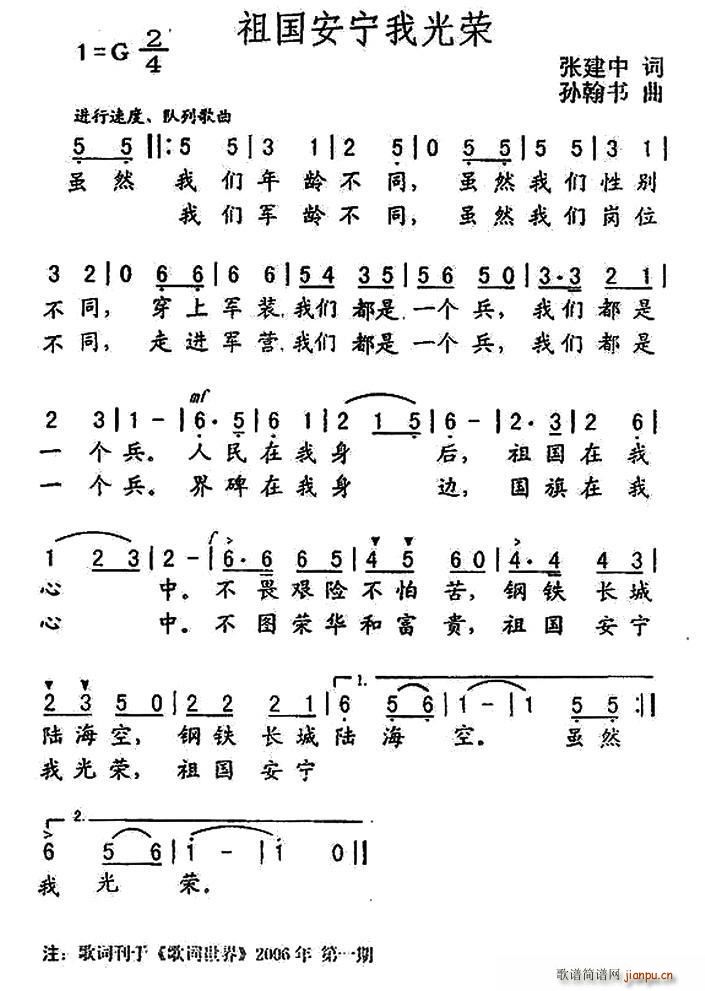 祖国安宁我光荣
1=G 2/4
张建中 词
孙翰书 曲
进行速度、队列歌曲
5 5 ‖: 5 5 | 3 1 | 2 5 | 0 5 5 | 5 5 | 3 1 |
虽然 我们年龄不同, 虽然我们性别
我们军龄不同, 虽然我们岗位
3 2 | 0 6 6 | 6 6 | 5 4 3 5 | 5 6 5 0 | 3·3 2 1 |
不同, 穿上军装,我们都是一个兵, 我们都是
不同, 走进军营,我们都是一个兵, 我们都是
mf
2 3 | 1 - | 6·5 | 6 1 | 2 1 5 | 6 - | 2·3 | 2 6 |
一个兵。人民在我身 后, 祖国在我
一个兵。界碑在我身 边, 国旗在我
f
1 2 3 | 2 - | 6·6 6 5 | 4 5 6 0 | 4·4 4 3 |
心 中。不畏艰险不怕苦,钢铁长城
心 中。不图荣华和富贵,祖国安宁
1.
2 3 5 0 | 2 2 2 1 | 6 5 6 | 1 - | 1 5 5 :‖
陆海空, 钢铁长城陆海空。 虽然
我光荣, 祖国安宁
2.
6 5 6 | 1 - | 1 0 ‖
我光荣。
注: 歌词刊于《歌词世界》2006年 第一期
歌谱简谱网
jianpu.cn